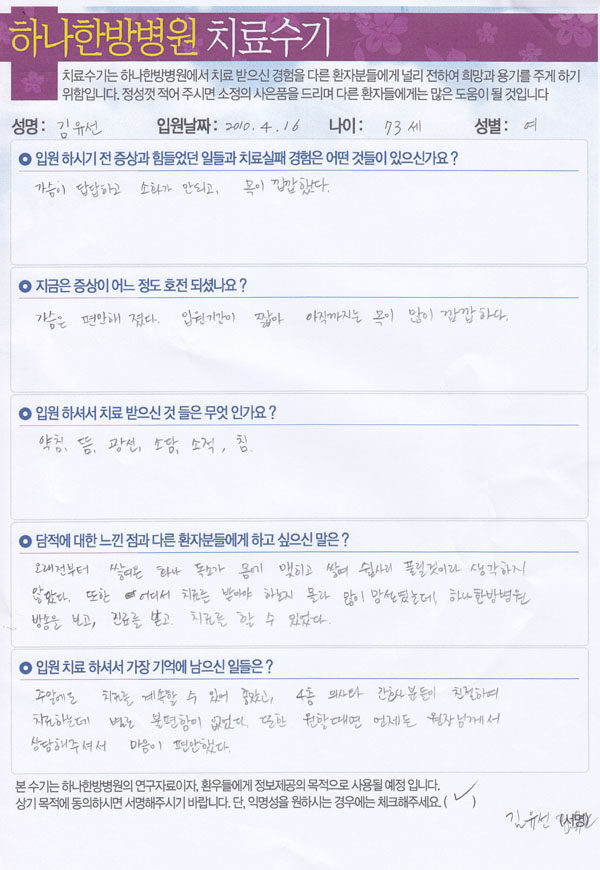 하나한방병원 치료수기
치료수기는 하나한방병원에서 치료 받으신 경험을 다른 환자분들에게 널리 전하여 희망과 용기를 주게 하기
위함입니다. 정성껏 적어 주시면 소정의 사은품을 드리며 다른 환자들에게는 많은 도움이 될 것입니다
성명: 김유선 입원날짜: 2010. 4. 16 나이: 73세 성별: 여
입원 하시기 전 증상과 힘들었던 일들과 치료실패 경험은 어떤 것들이 있으신가요?
가슴이 답답하고 소화가 안되고, 목이 깝깝했다.
지금은 증상이 어느 정도 호전 되셨나요?
가슴은 편안해 졌다. 입원기간이 짧아 아직까지는 목이 많이 깝깝하다.
입원 하셔서 치료 받으신 것 들은 무엇 인가요?
약침, 뜸, 광선, 소담, 소적, 침.
담적에 대한 느낀 점과 다른 환자분들에게 하고 싶으신 말은?
오래전부터 쌓여온 화나 독소가 몸에 맺히고 쌓여 쉽사리 풀릴것이라 생각하지
않았다. 또한 어디서 치료를 받아야 하는지 몰라 많이 망설였는데, 하나한방병원
방송을 보고, 진료를 받고 치료를 할 수 있었다.
입원 치료 하셔서 가장 기억에 남으신 일들은?
주말에도 치료를 계속할 수 있어 좋았고, 4층 의사와 간호사분들이 친절하여
치료하는데 별로 불편함이 없었다. 또한 원할때면 언제든 원장님께서
상담해주셔서 마음이 편안했다.
본 수기는 하나한방병원의 연구자료이자, 환우들에게 정보제공의 목적으로 사용될 예정 입니다.
상기 목적에 동의하시면 서명해주시기 바랍니다. 단, 익명성을 원하시는 경우에는 체크해주세요. ( ✓ )
김유선 (서명)